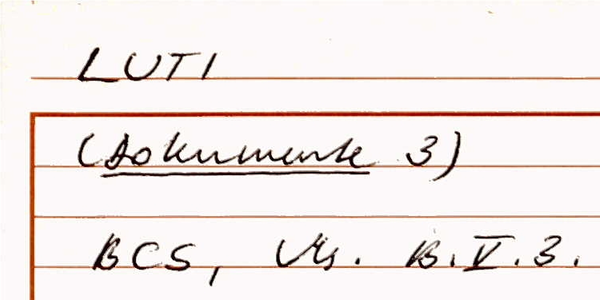 LUTI
(Dokumente 3)
BCS, Ms. B.V.3.